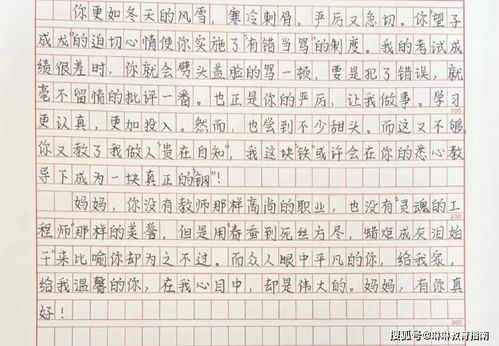 你更如冬天的风雪，寒冷刺骨，严厉又急切。你"望子
成龙"的迫切心情使你实施了"有错当骂"的制度。我的考试成
绩很差时，你就会劈头盖脸的骂一顿，要是犯了错误，就
毫不留情的批评一番。也正是你的严厉，让我做事。学习
100
更认真，更加投入。然而，也尝到不少甜头。而这又不够，
你又教了我做人"贵在自知"，我这块"铁"或许会在你的悉心教
导下成为一块真正的"钢"！
妈妈，你没有教师那样高尚的职业，也没有"灵魂的工
200
程师"那样的美誉，但是用"春蚕到死丝方尽，蜡炬成灰泪始
干"来比喻你却为之不过。而众人眼中平凡的你，给我家，
给我温馨的你，在我心目中，却是伟大的。妈妈，有你真
好！
300
搜狐号@琳琳教育指南